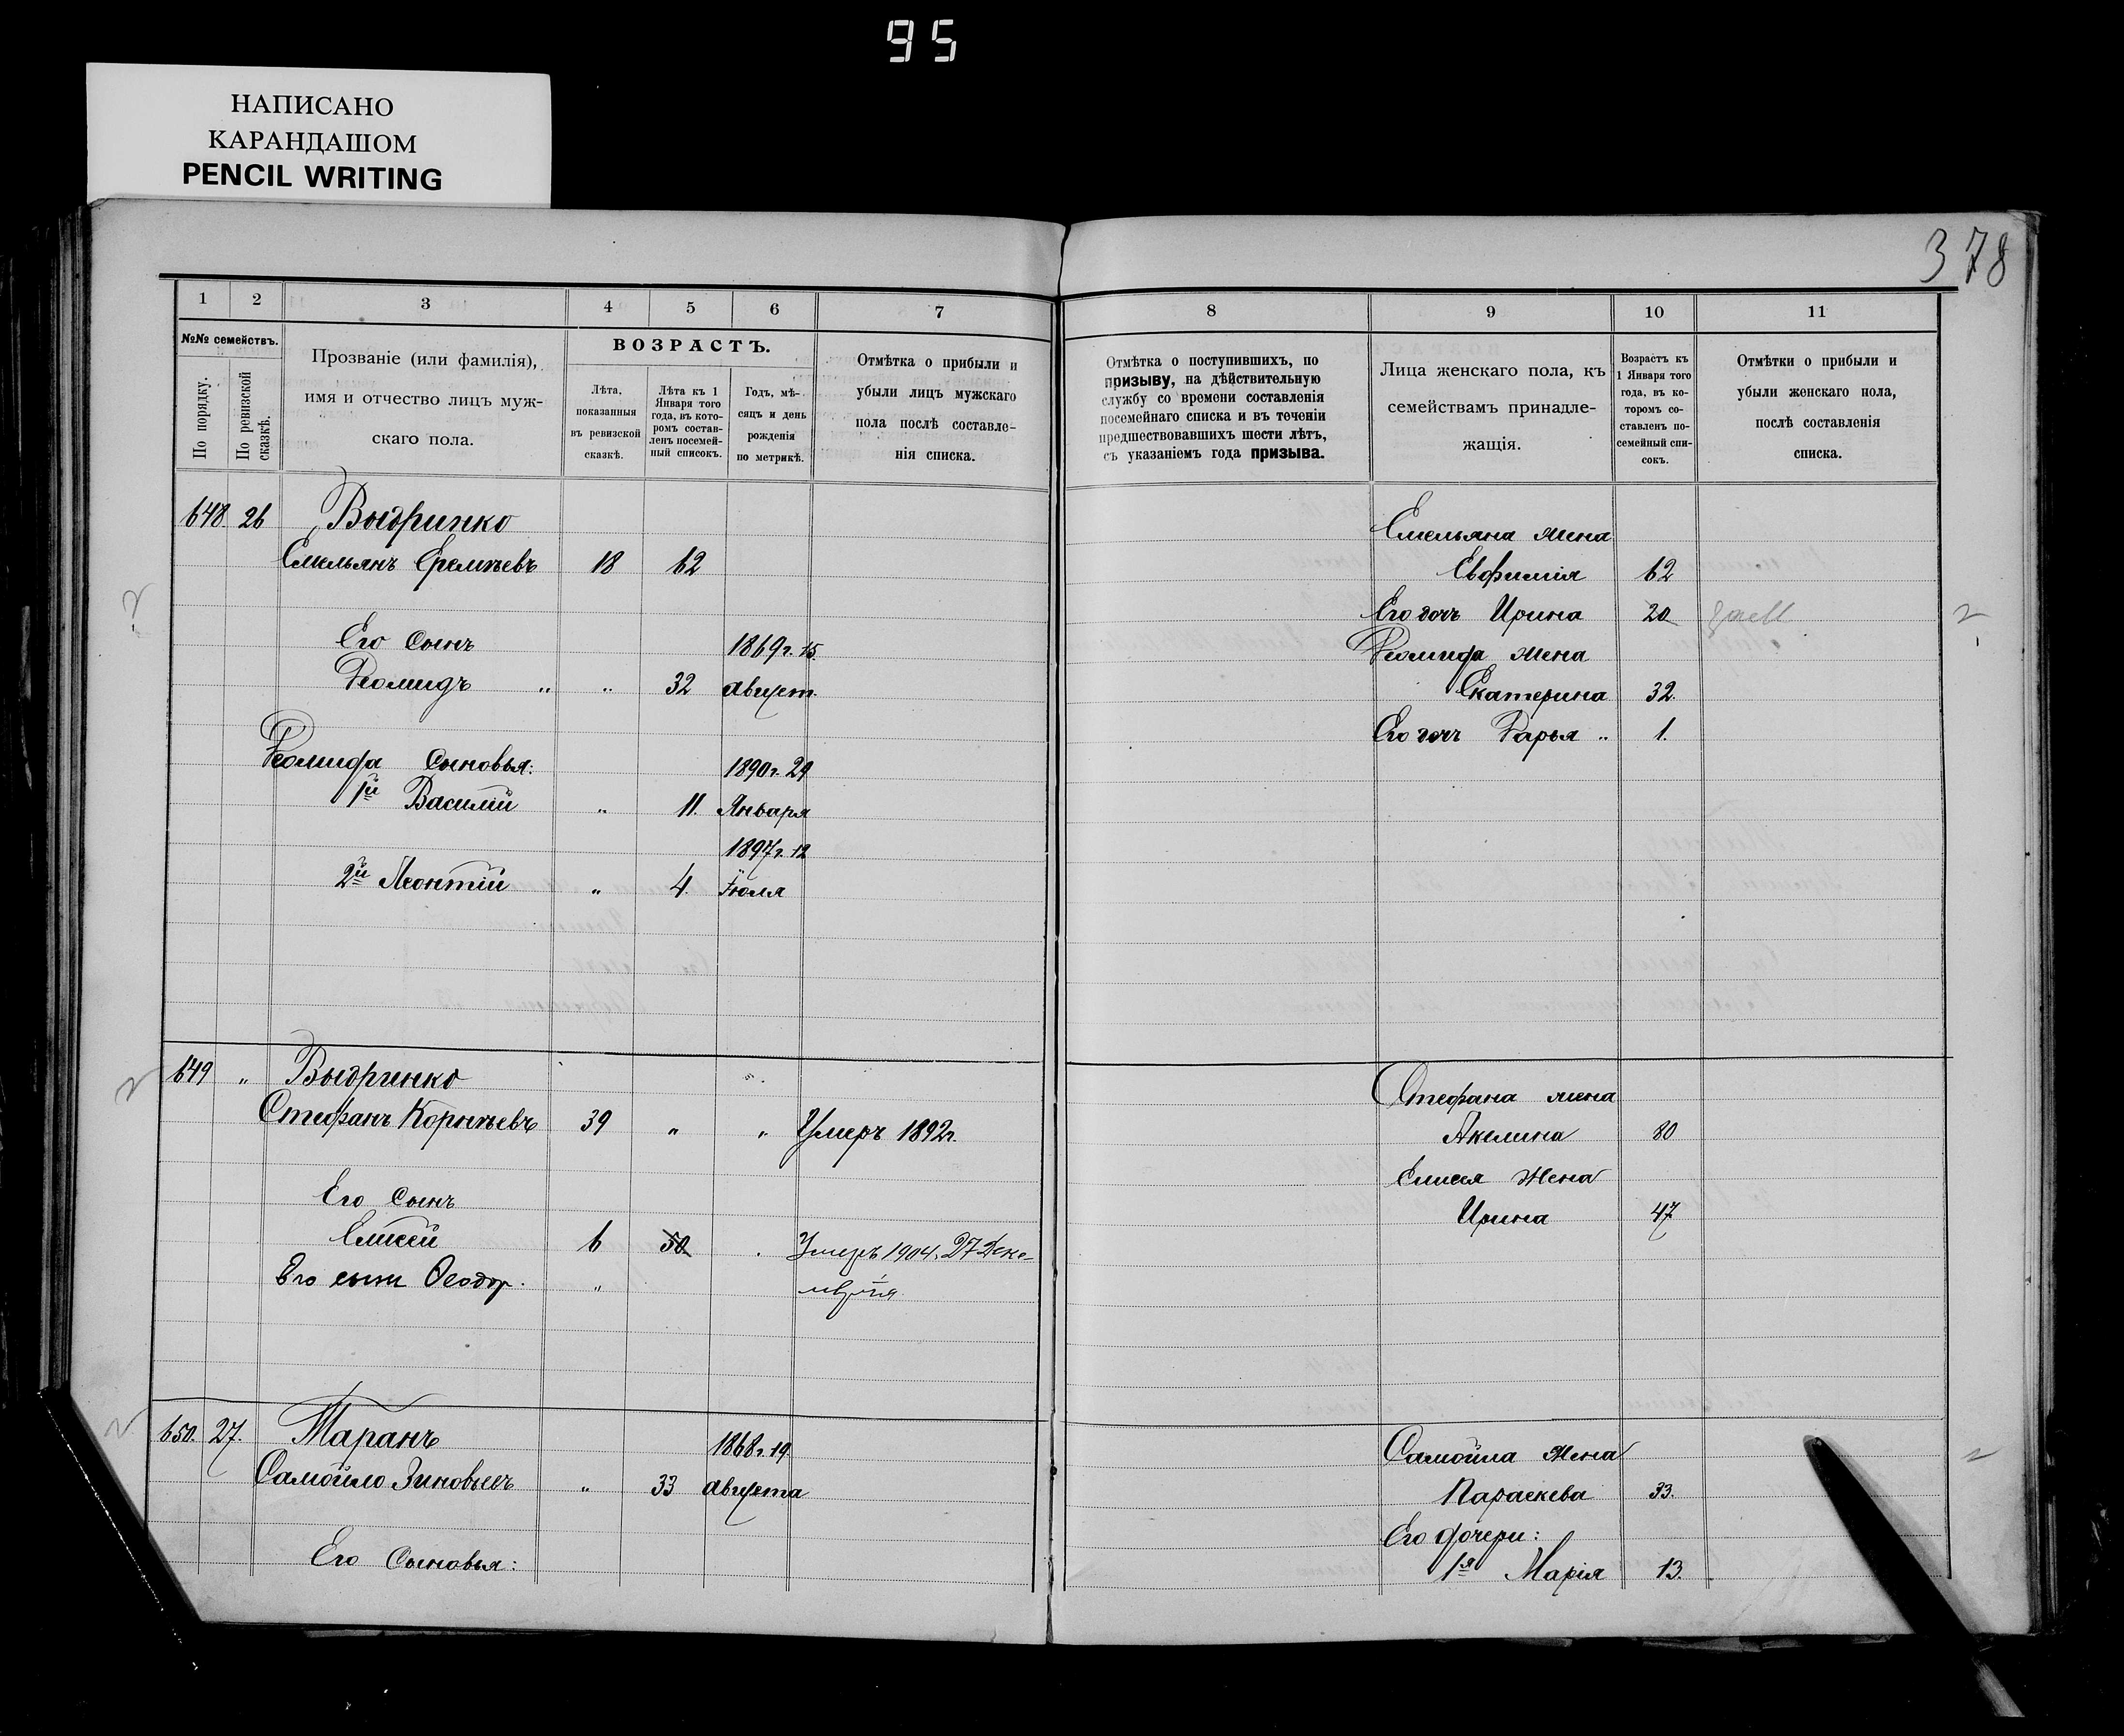 95
НАПИСАНО
КАРАНДАШОМ
PENCIL WRITING
378
1 2 3 4 5 6 7
№№ семействъ.
По порядку.
По ревизской сказкѣ.
Прозваніе (или фамилія),
имя и отчество лицъ муж-
скаго пола.
ВОЗРАСТЪ.
Лѣта,
показанныя
въ ревизской
сказкѣ.
Лѣта къ 1
Января того
года, въ кото-
ромъ состав-
ленъ посемей-
ный списокъ.
Годъ, мѣ-
сяцъ и день
рожденія
по метрикѣ.
Отмѣтка о прибыли и
убыли лицъ мужскаго
пола послѣ составле-
нія списка.
648 26 Выдринко
Емельянъ Еремѣевъ 18 62
Его Сынъ 1869г. 15
Леомидъ „ „ 32 август.
Леомида Сыновья: 1890г. 29
1й Василій „ 11. Января
1897г. 12
2й Леонтій „ 4. Іюля
649 „ Выдринко
Стефанъ Корнѣевъ 39 „ „ Умеръ 1892г.
Его Сынъ
Елисей 6 50 Умеръ 1904. 27 Дека-
Его сынъ Ѳеодор. „
650. 27. Таранъ 1868г. 19
Самойло Зиновьевъ „ 33 августа
Его Сыновья:
8 9 10 11
Отмѣтка о поступившихъ, по
призыву, на дѣйствительную
службу со времени составленія
посемейнаго списка и въ теченіи
предшествовавшихъ шести лѣтъ,
съ указаніемъ года призыва.
Лица женскаго пола, къ
семействамъ принадле-
жащія.
Возрастъ къ
1 Января того
года, въ ко-
торомъ со-
ставленъ по-
семейный спи-
сокъ.
Отмѣтки о прибыли и
убыли женскаго пола,
послѣ составленія
списка.
Емельяна жена
Евфимія 62
Его дочь Ирина 20
Леомида жена
Екатерина 32.
Его дочь Дарья „ 1.
Стефана жена
Акилина 80
Елисея Жена
Ирина 47
Самойла Жена
Параскева 33.
Его дочери:
1я Марія 13.